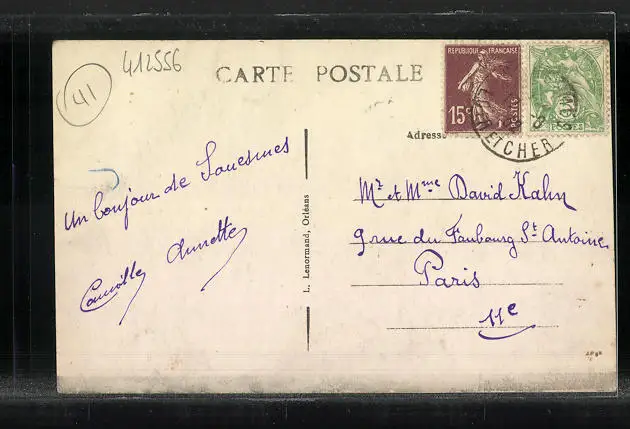 412556
41
CARTE POSTALE
RÉPUBLIQUE FRANÇAISE
15c
POSTES
ET CHER
Adresse
Un bonjour de Souesmes
Camille Annette
L. Lenormand, Orléans
Mr et Mme David Kahn
9 rue du Faubourg St. Antoine
Paris
11e